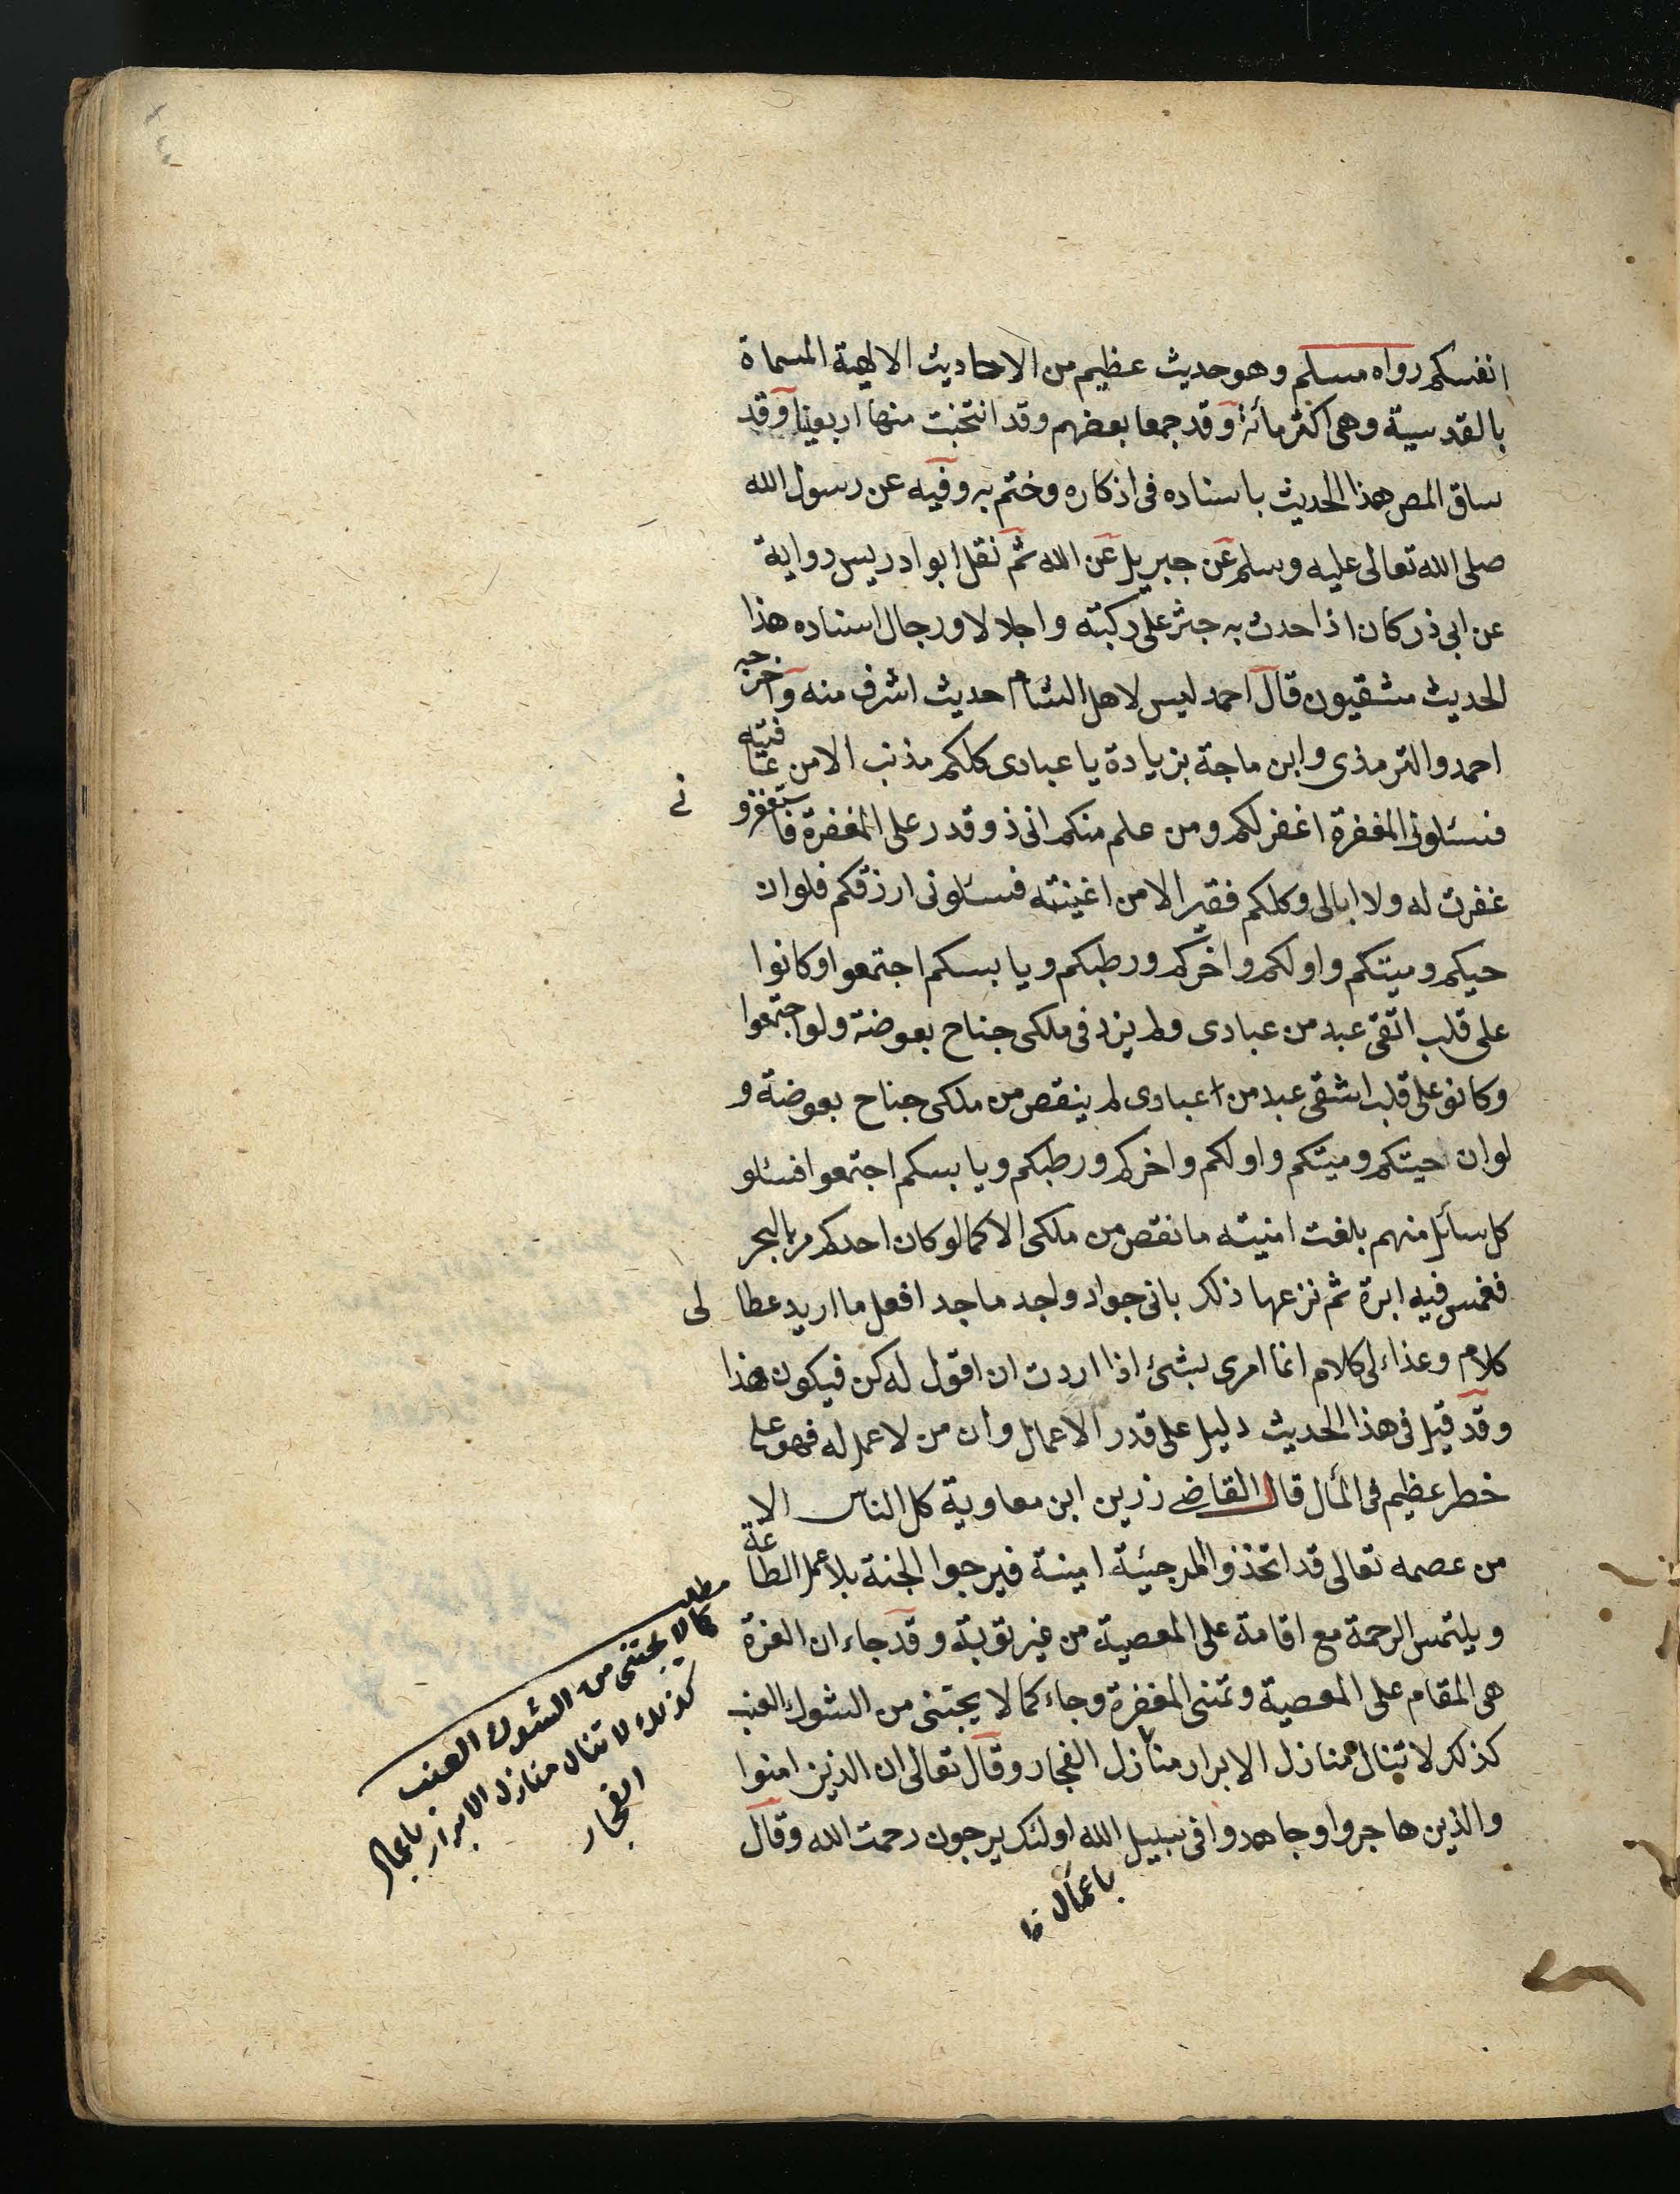 انفسكم رواه مسلم وهو حديث عظيم من الاحاديث الالهية المسماة
بالقدسية وهى اكثر مائة وقد جمعا بعضهم وقد انتخبت منها اربعينا وقد
ساق المص هذا الحديث باسناده فى اذكاره وختم به وفيه عن رسول الله
صلى الله تعالى عليه وسلم عن جبريل عن الله ثم نقل ابو ادريس رواية
عن ابى ذر كان اذا حدث به جثر على ركبته واجلالا ورجال اسناده هذا
الحديث مشقيون قال احمد ليس لاهل الشام حديث اشرف منه واخرجه
احمد والترمذى وابن ماجة بزيادة يا عبادى كلكم مذنب الا من عافيته
فسئلونى المغفرة اغفر لكم ومن علم منكم انى ذو قدر على المغفرة فاستغفرو نى
غفرت له ولا ابالى وكلكم فقير الا من اغنيته فسئلونى ارزقكم فلو ان
حيكم وميتكم واولكم واخركم ورطبكم ويابسكم اجتمعوا وكانوا
على قلب اتقى عبد من عبادى ولم يزد فى ملكى جناح بعوضة ولو اجتمعوا
وكانو على قلب اشقى عبد من اعبادى لم ينقص من ملكى جناح بعوضة و
لو ان حيتكم وميتكم واولكم واخركم ورطبكم ويابسكم اجتمعوا فسئلو
كل سائل منهم بلغت امنيته ما نقص من ملكى الا كما لو كان احدكم مر بالبحر
فغمس فيه ابرة ثم نزعها ذلك بانى جواد واجد ماجد افعل ما اريد عطا لى
كلام وعذاء لى كلام انما امرى بشئ اذا اردت ان اقول له كن فيكون هذا
وقد قيل فى هذا الحديث دليل على قدر الاعمال وان من لا عمل له فهو على
خطر عظيم فى المأل قال القاضى زرين ابن معاوية كل الناس الا
من عصمه تعالى قد اتخذو المرجئية امينة فيرجوا الجنة بلا عمل الطاعة
ويلتمس الرحمة مع اقامة على المعصية من غير توبة وقد جاء ان الغرة
هى المقام على المعصية وتمنى المغفرة وجاء كما لا يجتنى من الشوك العنب
كذلك لا تنال منازل الابرار منازل الفجار وقال تعالى ان الذين امنوا
والذين هاجروا وجاهدوا فى سبيل الله اولئك يرجون رحمت الله وقال
باعمال
مطلب
كما لا يجتنى من الشوك العنب
كذلك لا تنال منازل الابرار باعمال
الفجار